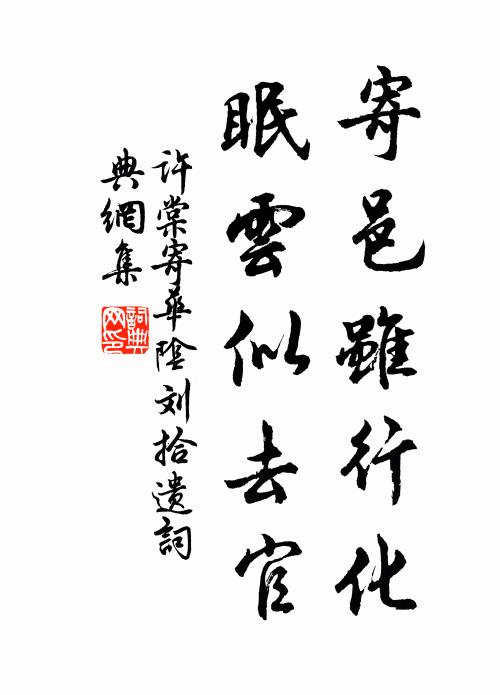 寄邑雖行化
眠雲似去官
許棠寄華陰刘拾遺詞
典網集
詞典
网印